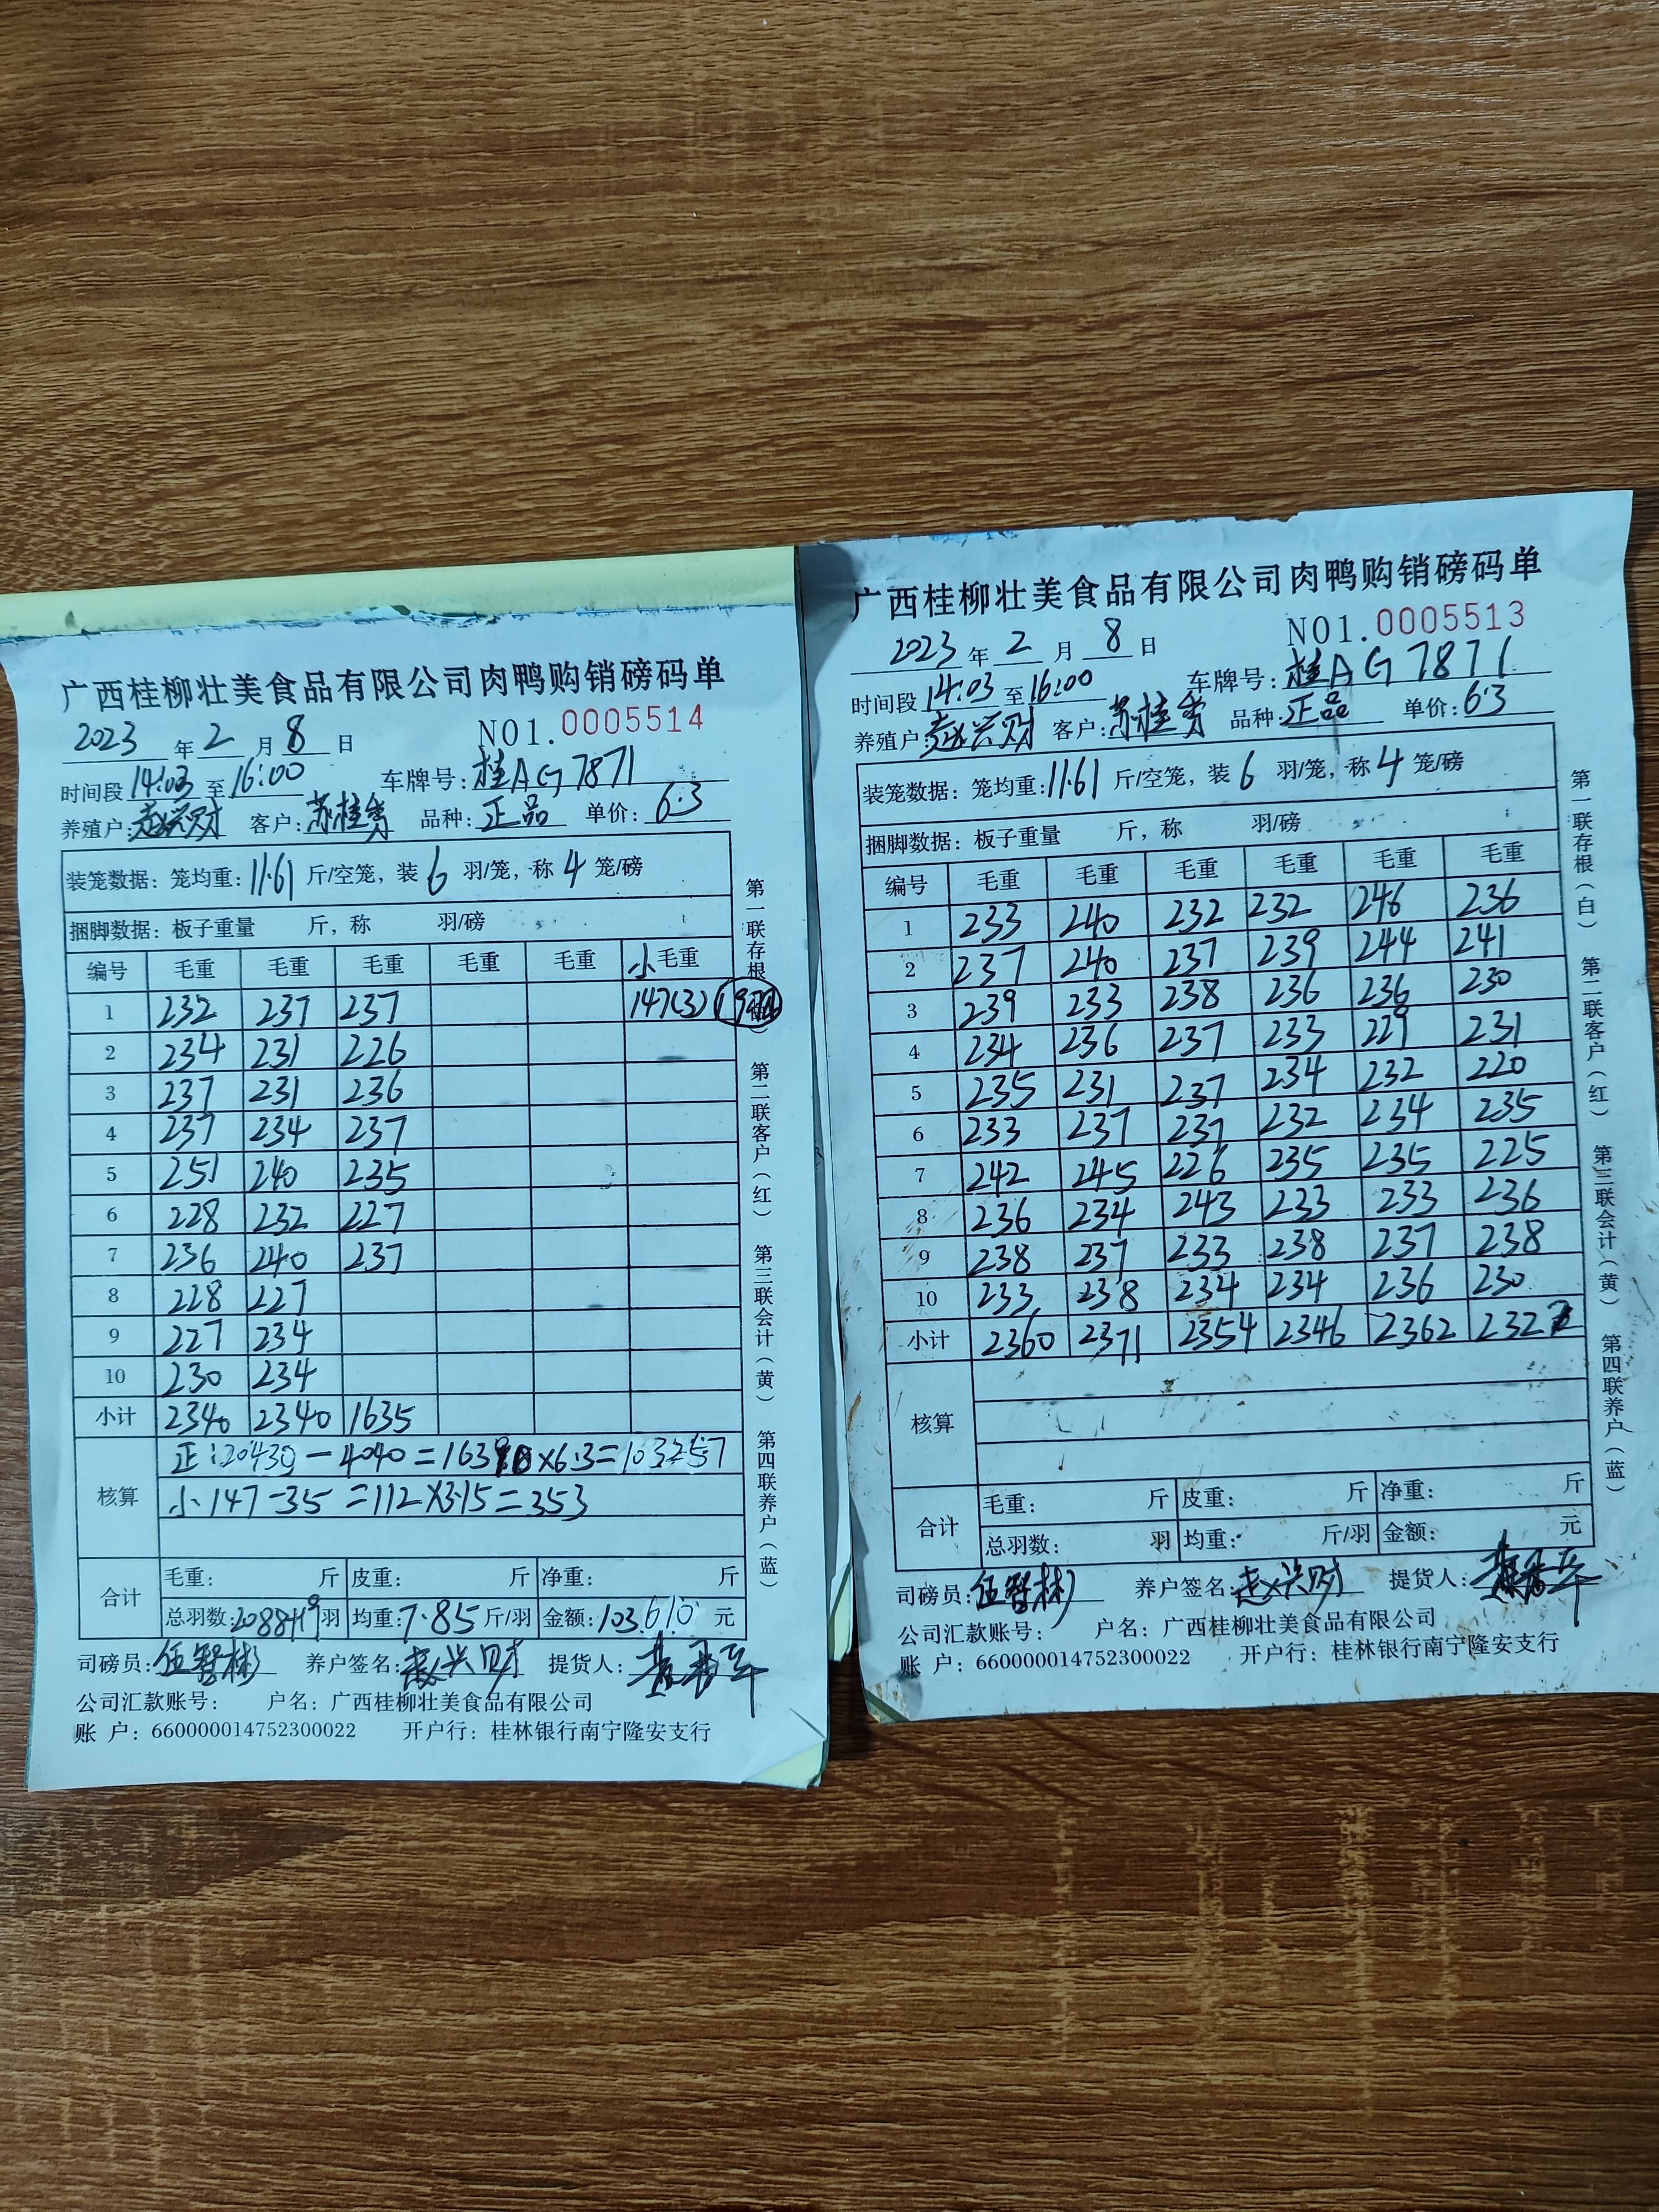 广西桂柳壮美食品有限公司肉鸭购销磅码单
2023 年 2 月 8 日 NO1.0005514
时间段 14:03 至 16:00 车牌号: 桂AG7871
养殖户: 赵兴财 客户: 苏桂秀 品种: 正品 单价: 6.3
装笼数据: 笼均重: 11.61 斤/空笼, 装 6 羽/笼, 称 4 笼/磅
捆脚数据: 板子重量 斤, 称 羽/磅
编号 毛重 毛重 毛重 毛重 毛重 小毛重
1 232 237 237 147(3)
2 234 231 226
3 237 231 236
4 237 234 237
5 251 240 235
6 228 232 227
7 236 240 237
8 228 227
9 227 234
10 230 234
小计 2340 2340 1635
核算
正: 20430 - 4040 = 16390 ×6.3= 103257
小 147-35 =112×3.15=353
合计
毛重: 斤 皮重: 斤 净重: 斤
总羽数: 羽 均重: 7.85 斤/羽 金额: 103610 元
司磅员: 伍智彬 养户签名: 赵兴财 提货人:
公司汇款账号: 户名: 广西桂柳壮美食品有限公司
账 户: 660000014752300022 开户行: 桂林银行南宁隆安支行
第一联存根 第二联客户(红) 第三联会计(黄) 第四联养户(蓝)
广西桂柳壮美食品有限公司肉鸭购销磅码单
2023 年 2 月 8 日 NO1.0005513
时间段 14:03 至 16:00 车牌号: 桂AG7871
养殖户: 赵兴财 客户: 苏桂秀 品种: 正品 单价: 6.3
装笼数据: 笼均重: 11.61 斤/空笼, 装 6 羽/笼, 称 4 笼/磅
捆脚数据: 板子重量 斤, 称 羽/磅
编号 毛重 毛重 毛重 毛重 毛重 毛重
1 233 240 232 232 246 236
2 237 240 237 239 244 241
3 239 233 238 236 236 230
4 234 236 237 233 229 231
5 235 231 237 234 232 220
6 233 237 237 232 234 235
7 242 245 226 235 235 225
8 236 234 243 233 233 236
9 238 237 233 238 237 238
10 233 238 234 234 236 230
小计 2360 2371 2354 2346 2362 2322
核算
合计
毛重: 斤 皮重: 斤 净重: 斤
总羽数: 羽 均重: 斤/羽 金额: 元
司磅员: 伍智彬 养户签名: 赵兴财 提货人:
公司汇款账号: 户名: 广西桂柳壮美食品有限公司
账 户: 660000014752300022 开户行: 桂林银行南宁隆安支行
第一联存根(白) 第二联客户(红) 第三联会计(黄) 第四联养户(蓝)